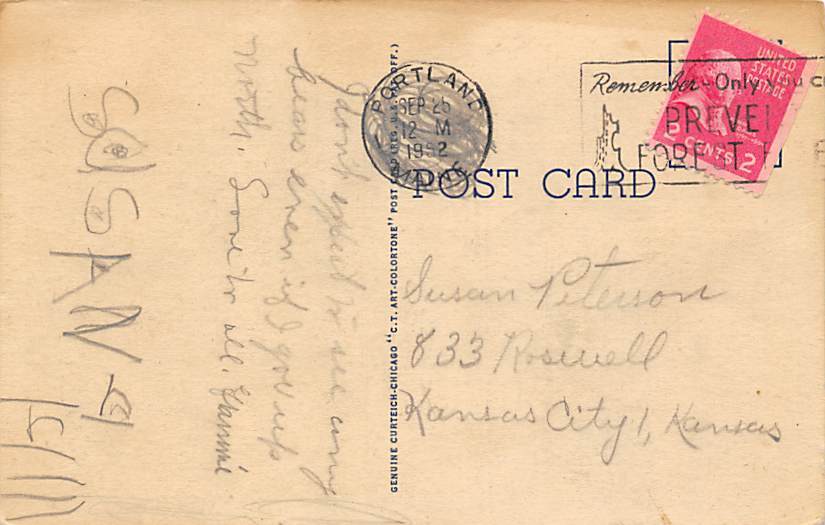 I don't expect to see any
bears even if I go up
North. Love to all.
SUSAN
GENUINE CURTEICH-CHICAGO "C.T. ART-COLORTONE" POST CARD (REG. U.S. PAT. OFF.)
PORTLAND
SEP 26
12 M
1952
MAINE
Remember-Only you c
PREVE
FOREST F
UNITED
STATES
POSTAGE
2 CENTS 2
POST CARD
Susan Peterson
833 Roswell
Kansas City 1, Kansas